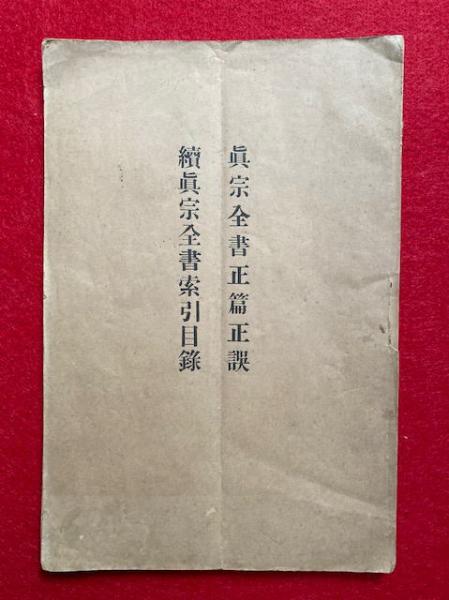 眞宗全書正篇正誤
續眞宗全書索引目錄